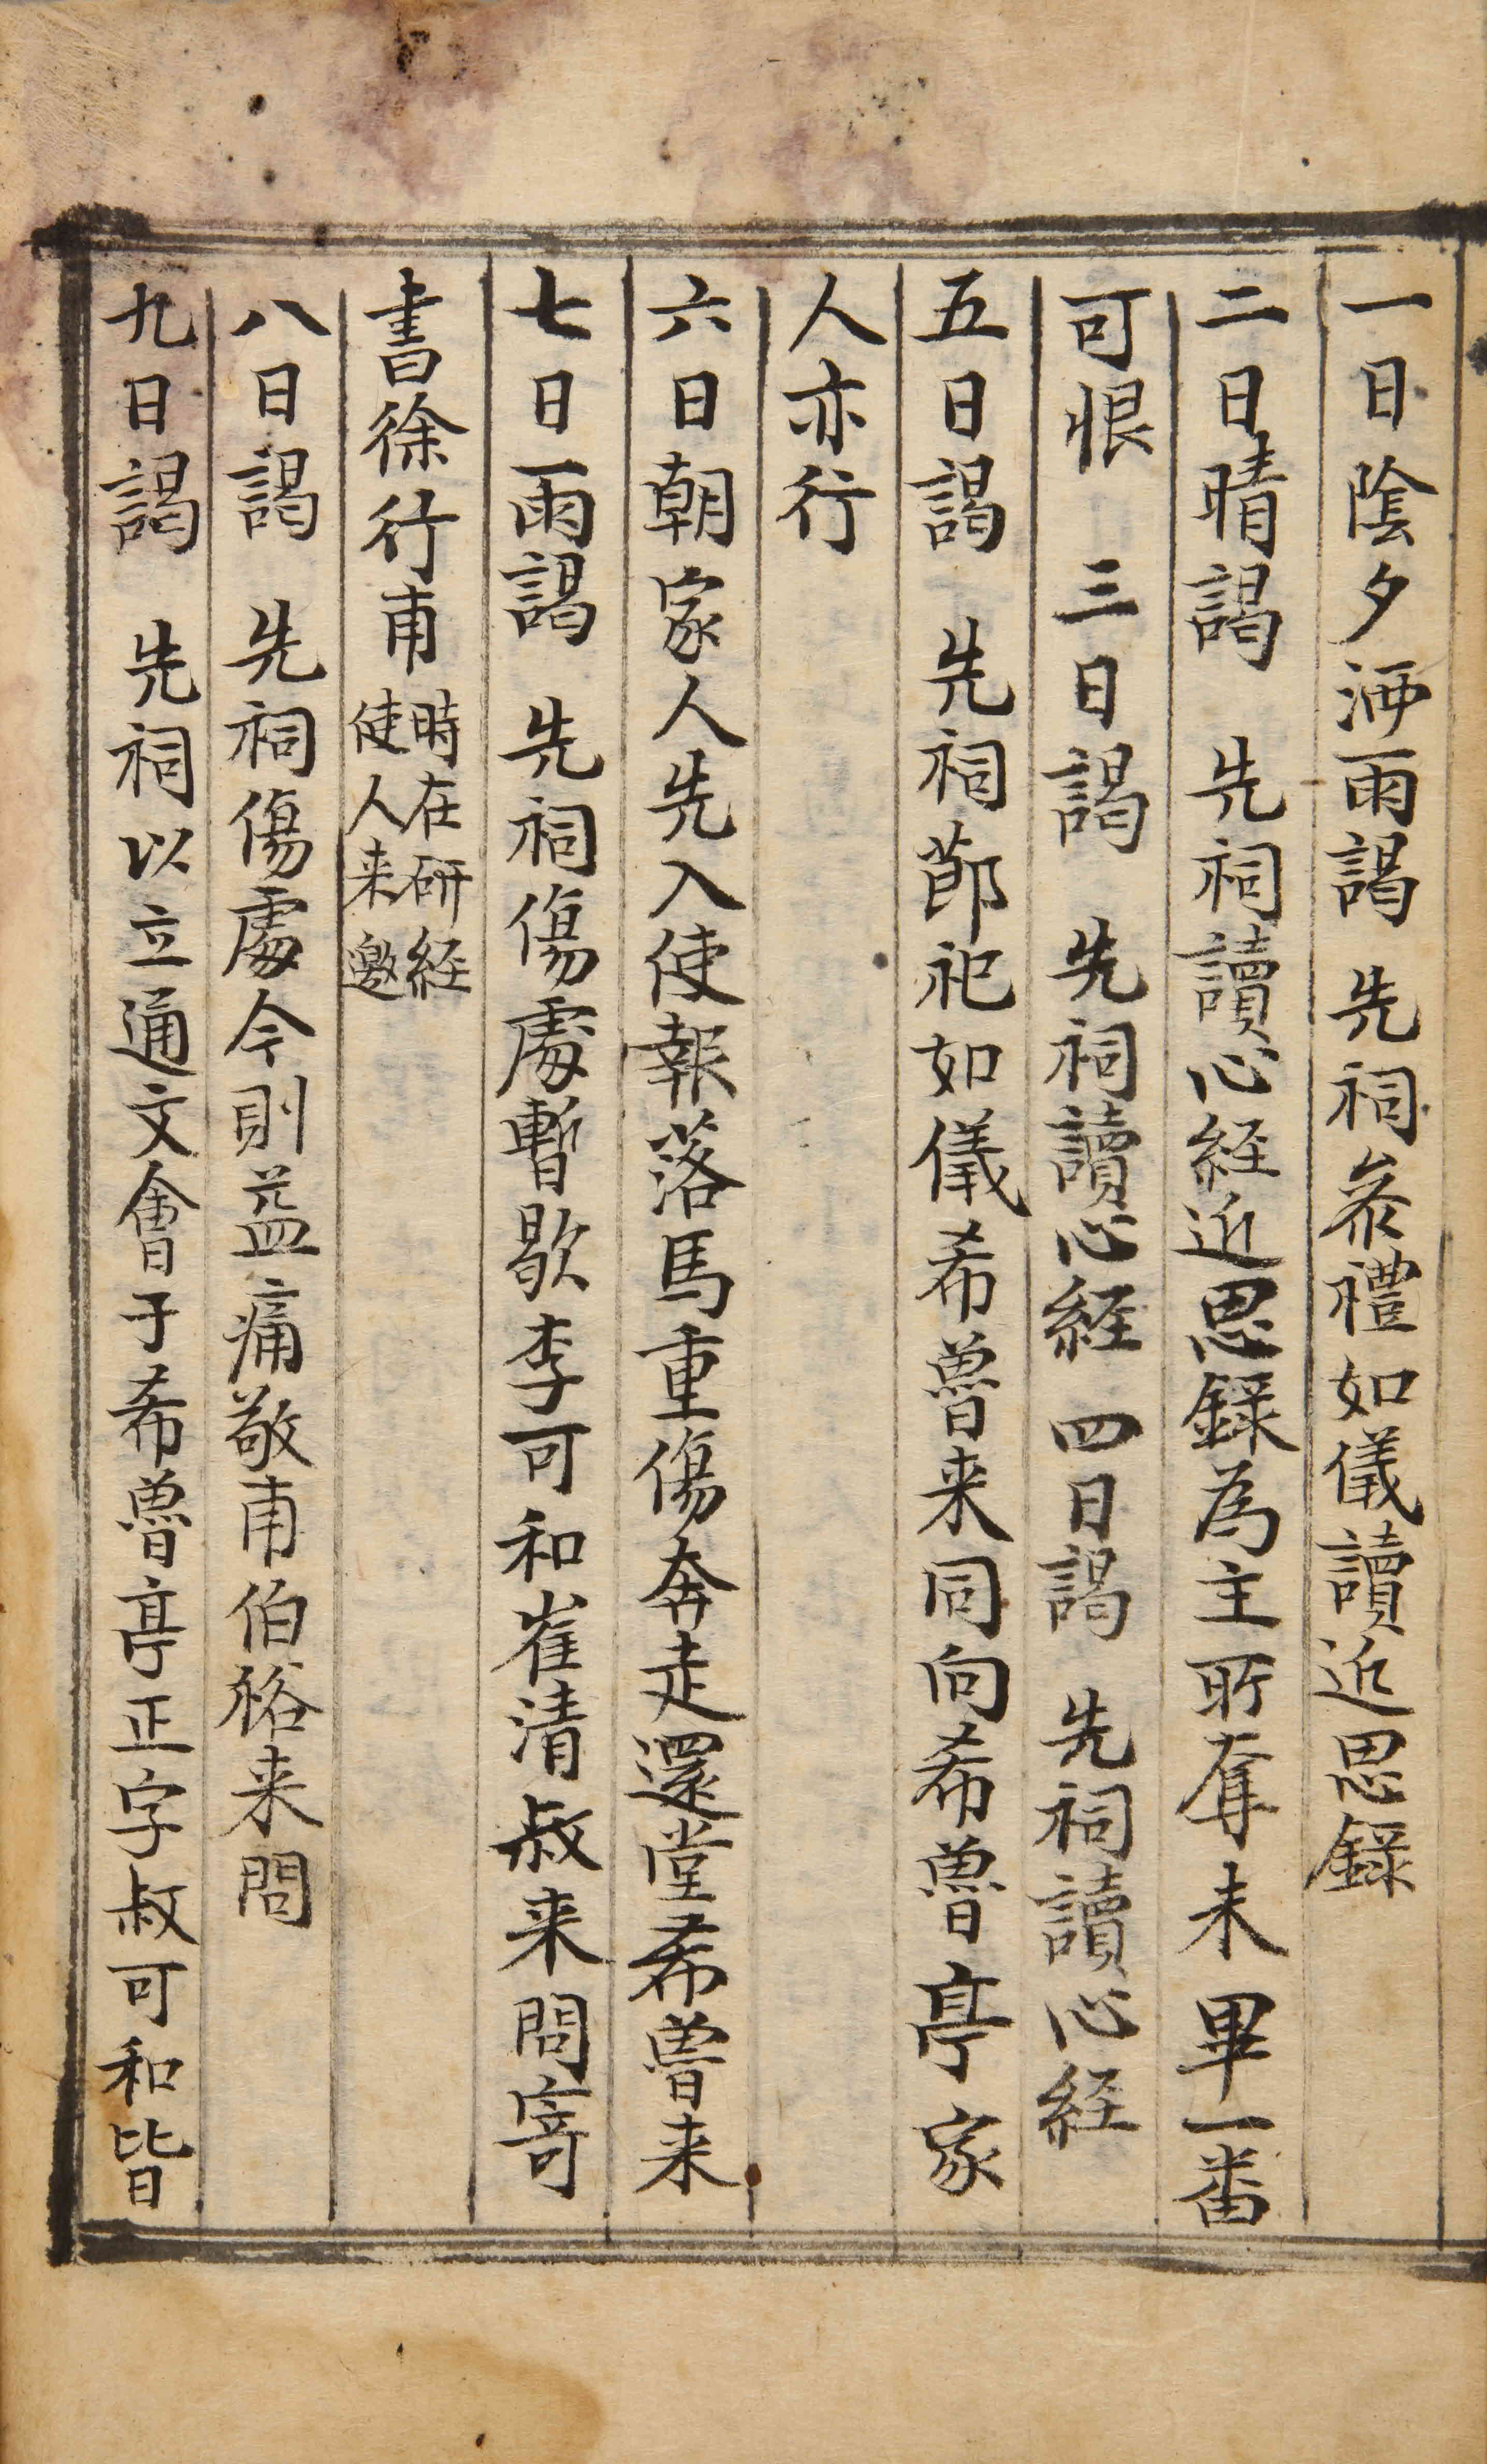 一日陰夕洒雨謁 先祠叅禮如儀讀近思錄
二日晴謁 先祠讀心経近思錄為主所奪未畢一番
可恨 三日謁 先祠讀心経 四日謁 先祠讀心経
五日謁 先祠節祀如儀希魯来同向希魯亭家
人亦行
六日朝家人先入使報落馬重傷奔走還堂希魯来
七日雨謁 先祠傷處暫歇李可和崔清叔来問寄
書徐行甫時在研経使人来邀
八日謁 先祠傷處今則益痛敬甫伯裕来問
九日謁 先祠以立通文會于希魯亭正字叔可和皆